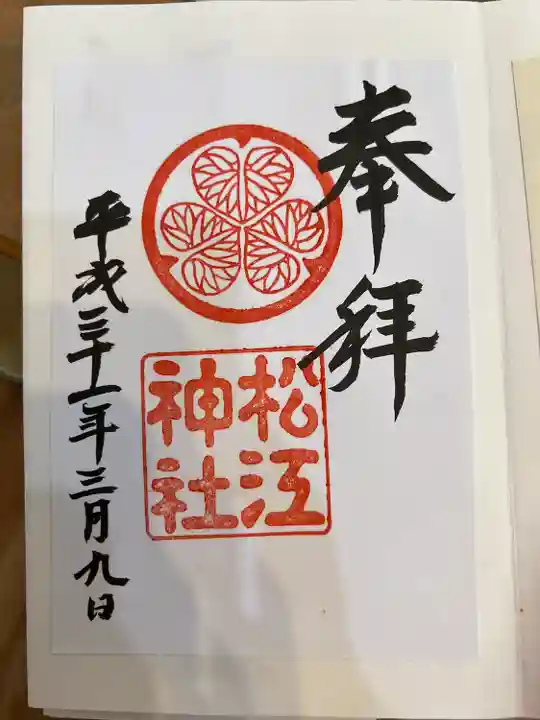 奉拝
松江
神社
平成三十一年三月九日